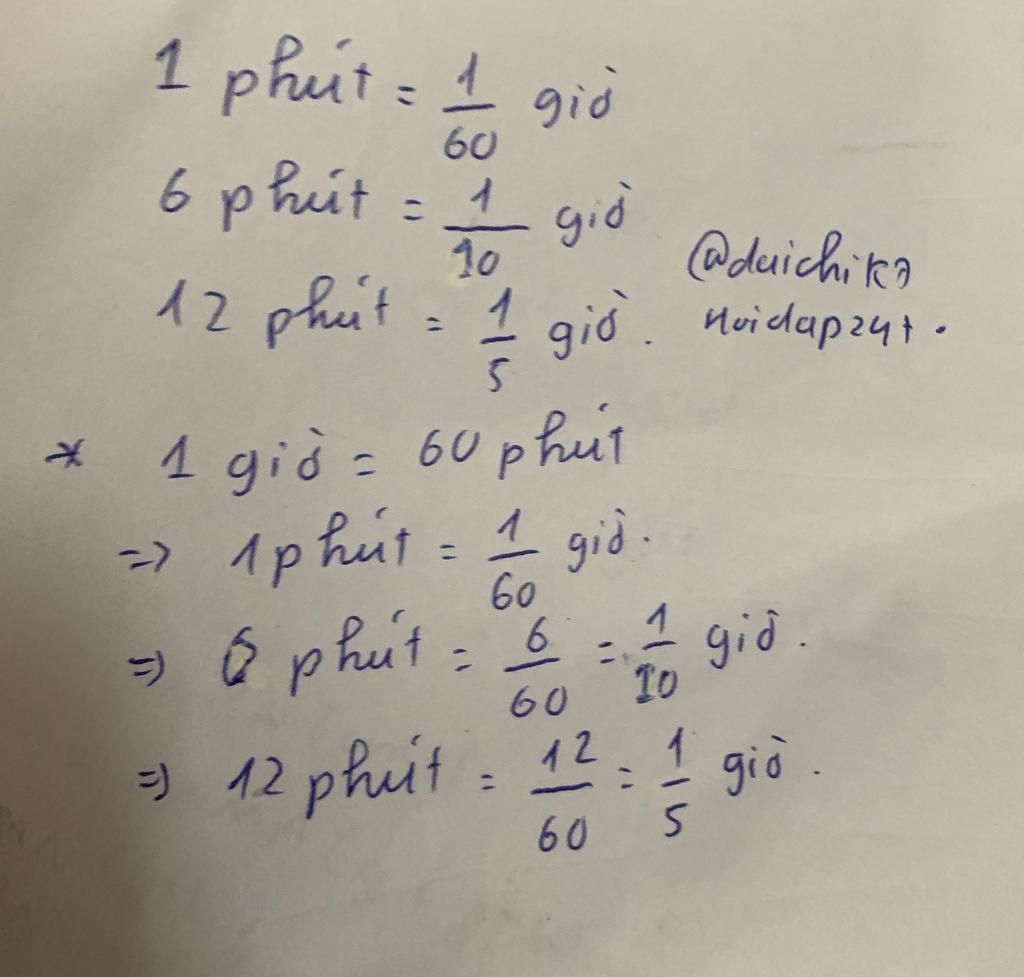 1 phút = 1/60 giờ
6 phút = 1/10 giờ
12 phút = 1/5 giờ.
noidap24t.
* 1 giờ = 60 phút
=> 1 phút = 1/60 giờ.
=> 6 phút = 6/60 = 1/10 giờ.
=> 12 phút = 12/60 = 1/5 giờ.